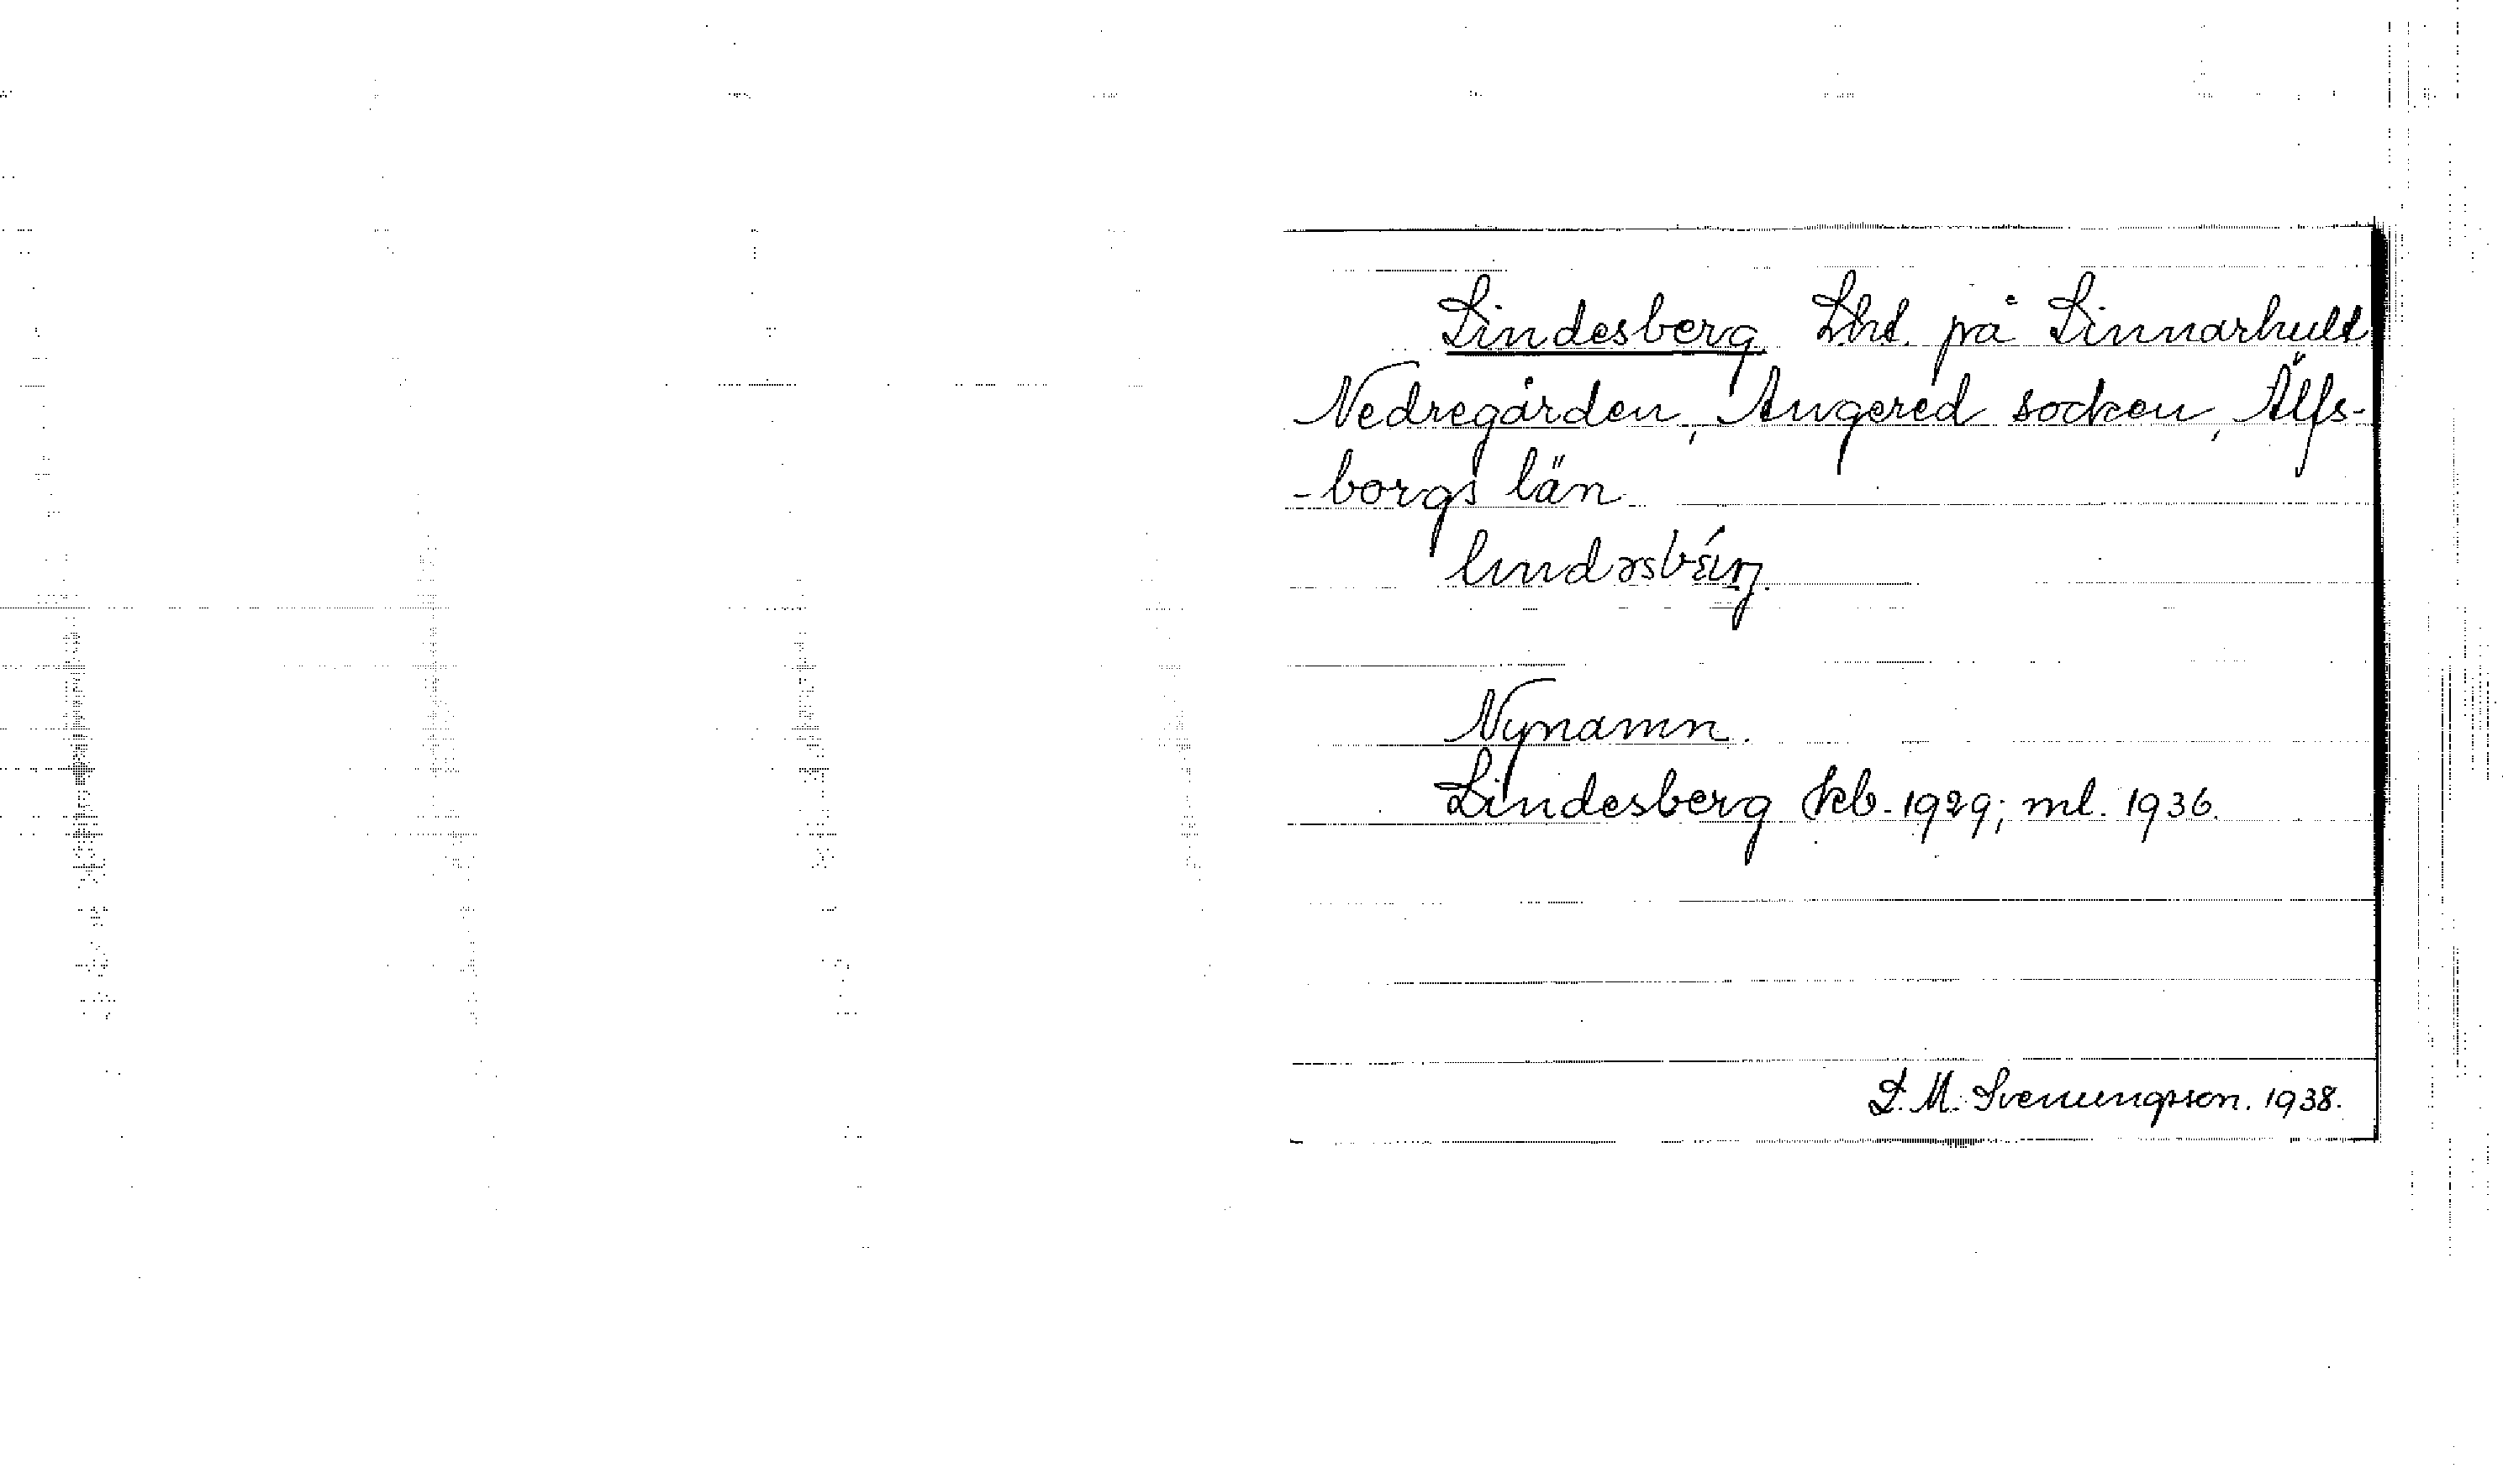 Lindesberg Lht. på Linnarhult
Nedregården, Angered socken, Älfs-
-borgs län
Nynamn.
Lindesberg kb. 1929; ml. 1936.
S. M. Svenungsson. 1938.